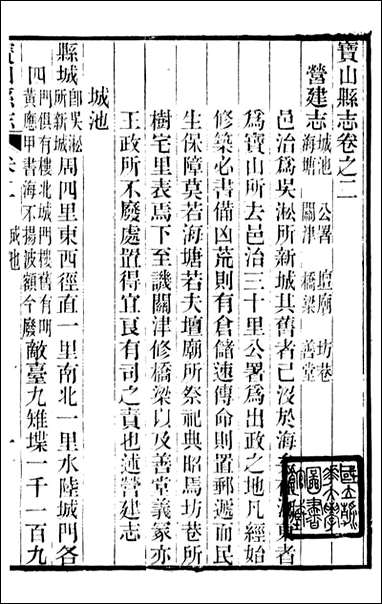 寶山縣志卷之二
營建志 城池 公署 壇廟 坊巷
海塘 關津 橋梁 善堂
邑治爲吳淞所新城其舊者已沒於海
海東者
爲寶山所去邑治三十里公署爲出政之地凡經始
修築必書備凶荒則有倉儲速傳命則置郵遞而民
生保障莫若海塘若夫壇廟所祭祀典昭焉坊巷所
樹宅里表焉下至譏關津修橋梁以及善堂義冢亦
王政所不廢處置得宜良有司之責也述營建志
城池
縣城 卽吳淞所新城 周四里東西徑直一里南北一里水陸城門各
四 門俱有樓北城門樓舊有門黃應甲書海不揚波額今廢 敵臺九雉堞一千一百九
寶山縣志 卷二 城池 一
國立
大學
圖書